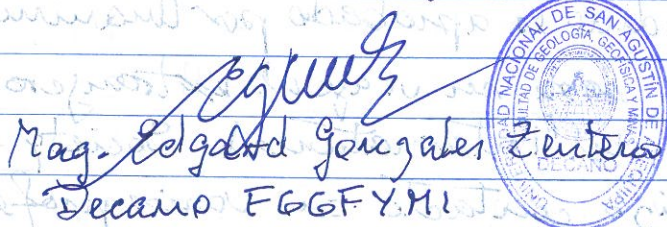 Mag. Edgard Gonzales Zenteno
Decano FGGFYMI
UNIVERSIDAD NACIONAL DE SAN AGUSTÍN DE AREQUIPA
FACULTAD DE GEOLOGÍA, GEOFÍSICA Y MINAS
DECANO